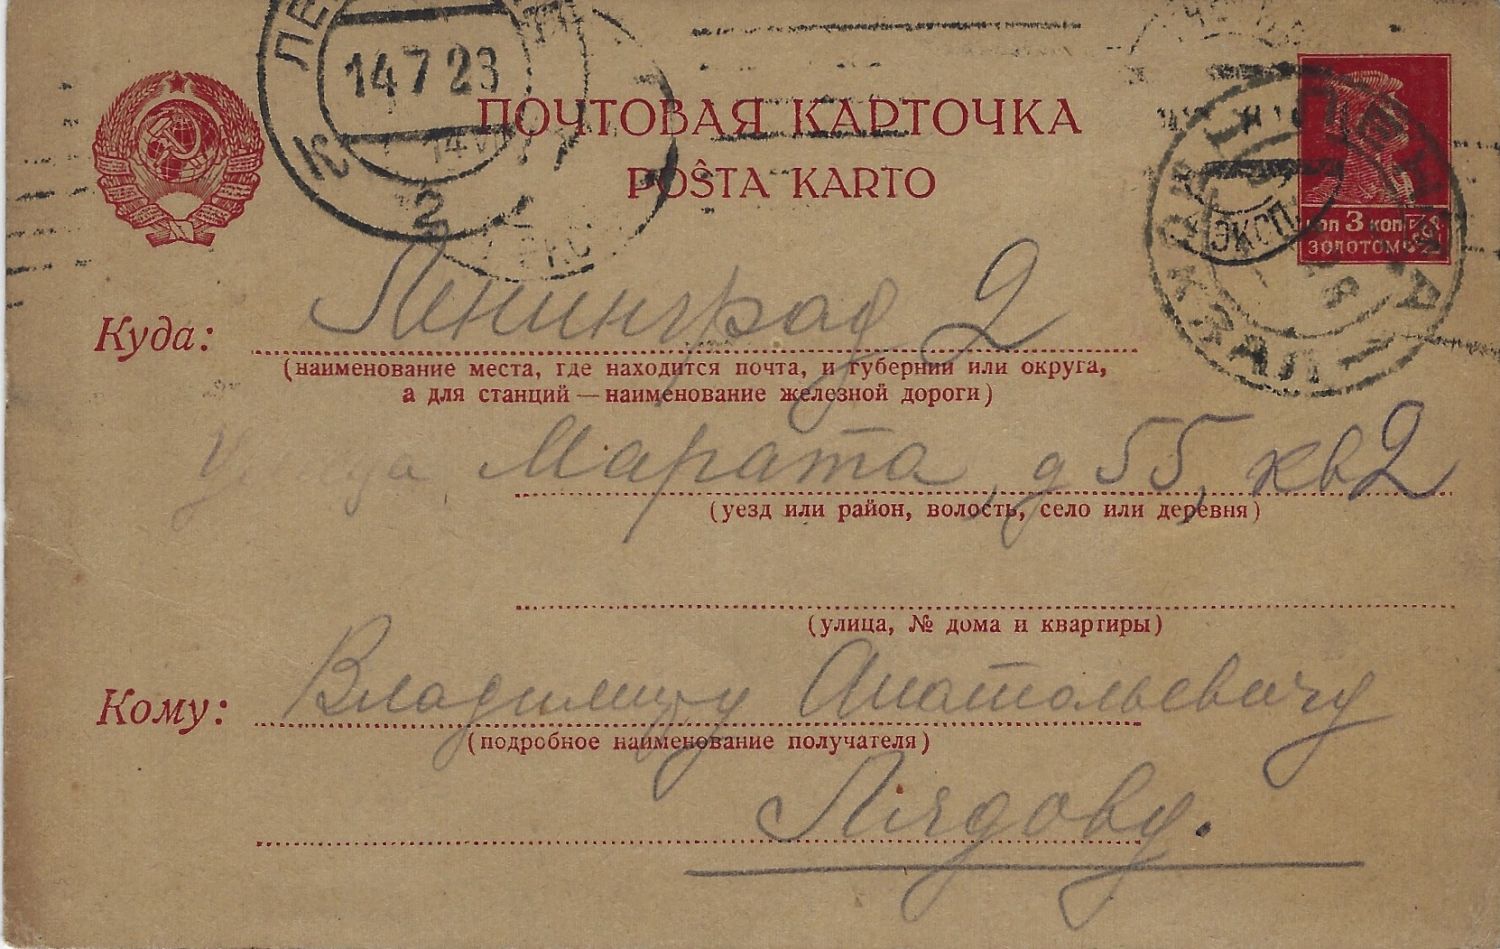 14.7.28
2
ПОЧТОВАЯ КАРТОЧКА
POŜTA KARTO
ЭКСП.
ВОКЗАЛ
коп 3 коп
ЗОЛОТОМ
Куда: Ленинград 2
(наименование места, где находится почта, и губернии или округа,
а для станций — наименование железной дороги)
Улица Марата, д 55, кв 2
(уезд или район, волость, село или деревня)
(улица, № дома и квартиры)
Кому: Владимиру Анатольевичу
(подробное наименование получателя)
Лядову.